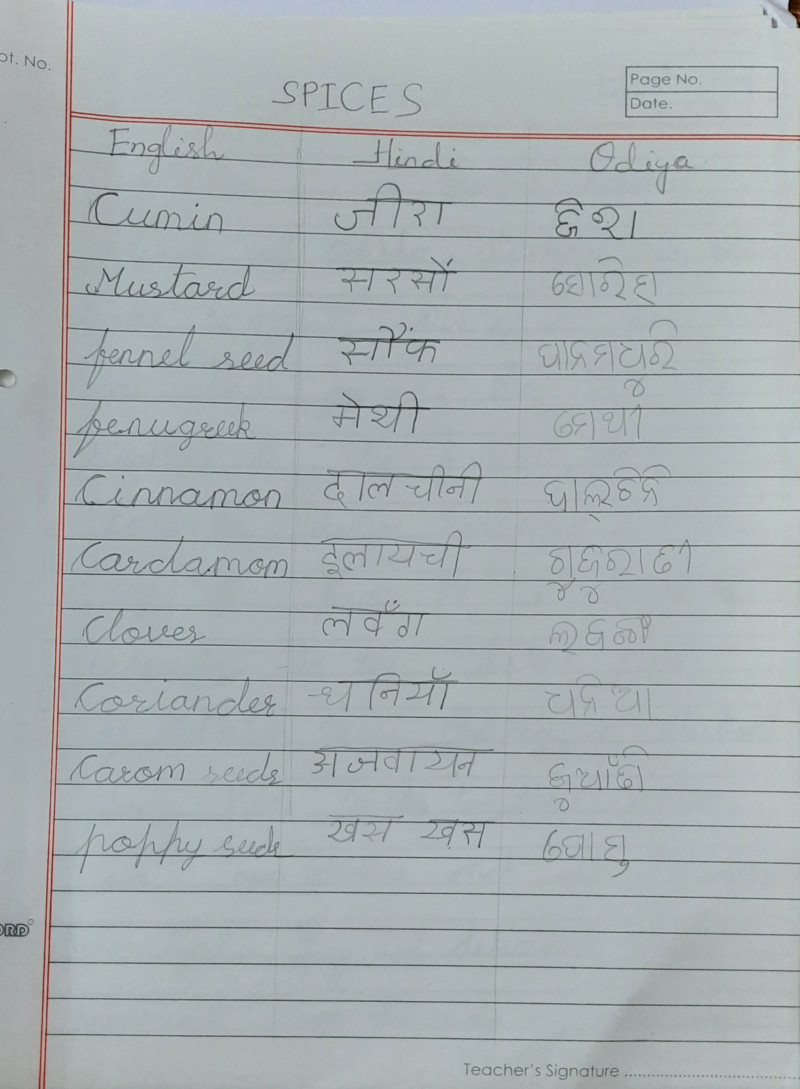 pt. No.
SPICES
Page No.
Date.
English Hindi Odiya
Cumin जीरा ଜିରା
Mustard सरसों ସୋରିଷ
fennel seed सौंफ ପାନମଧୁରି
fenugreek मेथी ମେଥୀ
Cinnamon दालचीनी ଡାଲ୍ଚିନି
Cardamom इलायची ଗୁଜୁରାତୀ
Clover लवँग
Coriander धनियाँ ଧନିଆ
Carom seeds अजवायन
poppy seeds खस ख़स
Teacher's Signature